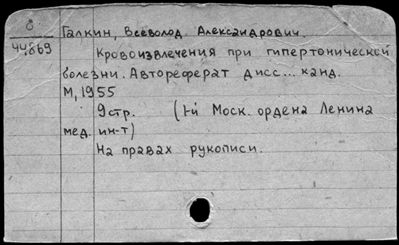 Б
Галкин, Всеволод Александрович.
44869
Кровоизвлечения при гипертонической
болезни. Автореферат дисс... канд.
М, 1955
9стр. (1-й Моск. ордена Ленина
мед. ин-т)
На правах рукописи.